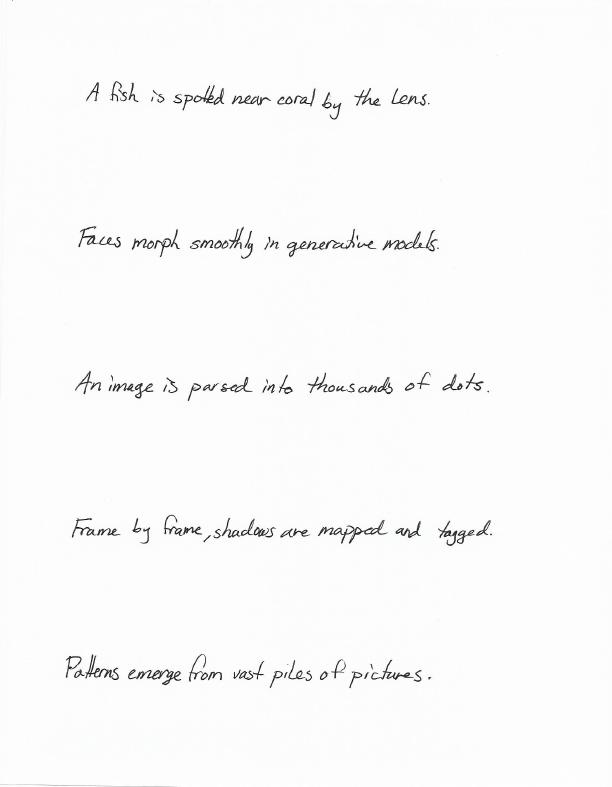 A fish is spotted near coral by the lens.
Faces morph smoothly in generative models.
An image is parsed into thousands of dots.
Frame by frame, shadows are mapped and tagged.
Patterns emerge from vast piles of pictures.